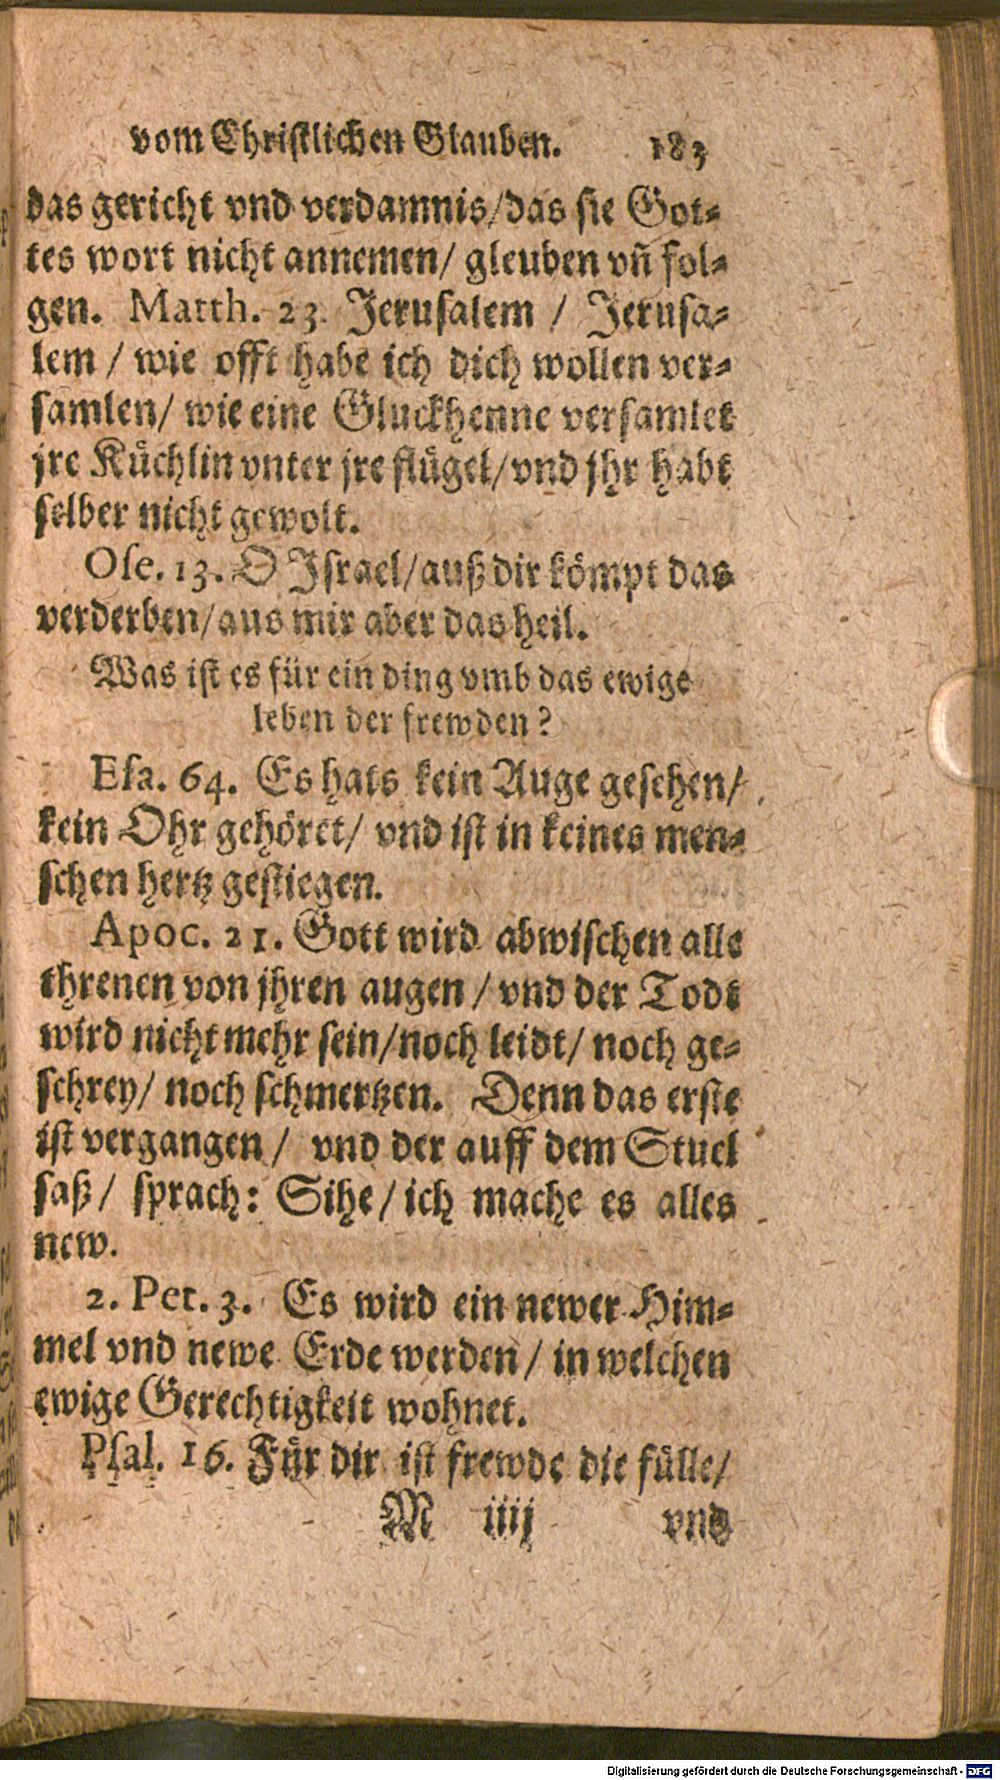 vom Christlichen Glauben. 183
das gericht vnd verdamnis/das sie Got⸗
tes wort nicht annemen/ gleuben vñ fol⸗
gen. Matth. 23. Jerusalem / Jerusa⸗
lem / wie offt habe ich dich wollen ver⸗
samlen/ wie eine Gluckhenne versamlet
jre Küchlin vnter jre flügel/vnd jhr habt
selber nicht gewolt.
Ose. 13. O Israel/auß dir kömpt das
verderben/aus mir aber das heil.
Was ist es für ein ding vmb das ewige
leben der frewden?
Esa. 64. Es hats kein Auge gesehen/
kein Ohr gehöret/ vnd ist in keines men⸗
schen hertz gestiegen.
Apoc. 21. Gott wird abwischen alle
threnen von jhren augen / vnd der Todt
wird nicht mehr sein/noch leidt/ noch ge⸗
schrey/ noch schmertzen. Denn das erste
ist vergangen / vnd der auff dem Stuel
saß/ sprach: Sihe/ich mache es alles
new.
2. Pet. 3. Es wird ein newer Him⸗
mel vnd newe Erde werden/ in welchen
ewige Gerechtigkeit wohnet.
Psal. 16. Für dir ist frewde die fülle/
M iiij vnd
Digitalisierung gefördert durch die Deutsche Forschungsgemeinschaft - DFG